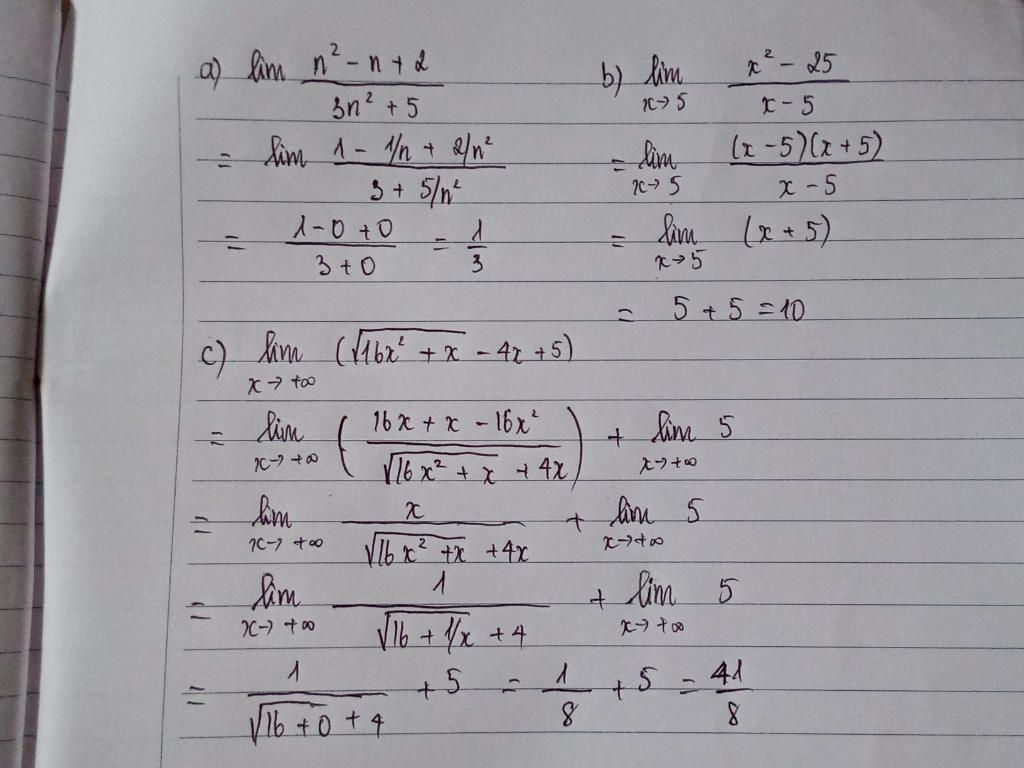 a) lim (n² - n + 2)/(3n² + 5)
= lim (1 - 1/n + 2/n²)/(3 + 5/n²)
= (1 - 0 + 0)/(3 + 0) = 1/3
b) lim x→5 (x² - 25)/(x - 5)
= lim x→5 ((x - 5)(x + 5))/(x - 5)
= lim x→5 (x + 5)
= 5 + 5 = 10
c) lim x→+∞ (√(16x² + x) - 4x + 5)
= lim x→+∞ ((16x + x - 16x²)/(√(16x² + x) + 4x)) + lim x→+∞ 5
= lim x→+∞ x/(√(16x² + x) + 4x) + lim x→+∞ 5
= lim x→+∞ 1/(√(16 + 1/x) + 4) + lim x→+∞ 5
= 1/(√(16 + 0) + 4) + 5 = 1/8 + 5 = 41/8